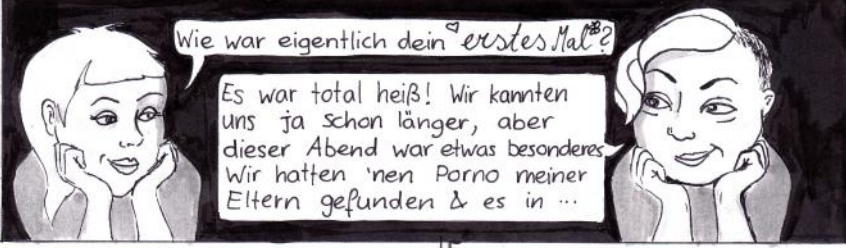 Wie war eigentlich dein "erstes Mal"?
Es war total heiß! Wir kannten
uns ja schon länger, aber
dieser Abend war etwas besonderes.
Wir hatten 'nen Porno meiner
Eltern gefunden & es in ...